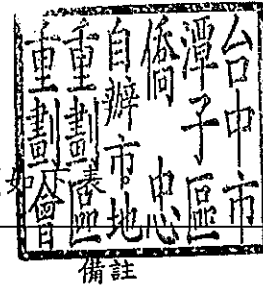 台中市
潭子區
僑中心
自辦市地
重劃區
重劃會
如下表
備註